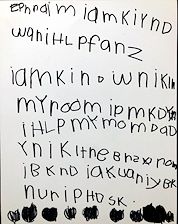 Ephraim iamkiynD
waniHLPfanz
iamkinDwnikIn
mYroomipmKDYn
iHLPmYmomDaD
YniKItne
iBKND iaKwaniyBK
nuniPHDSK.